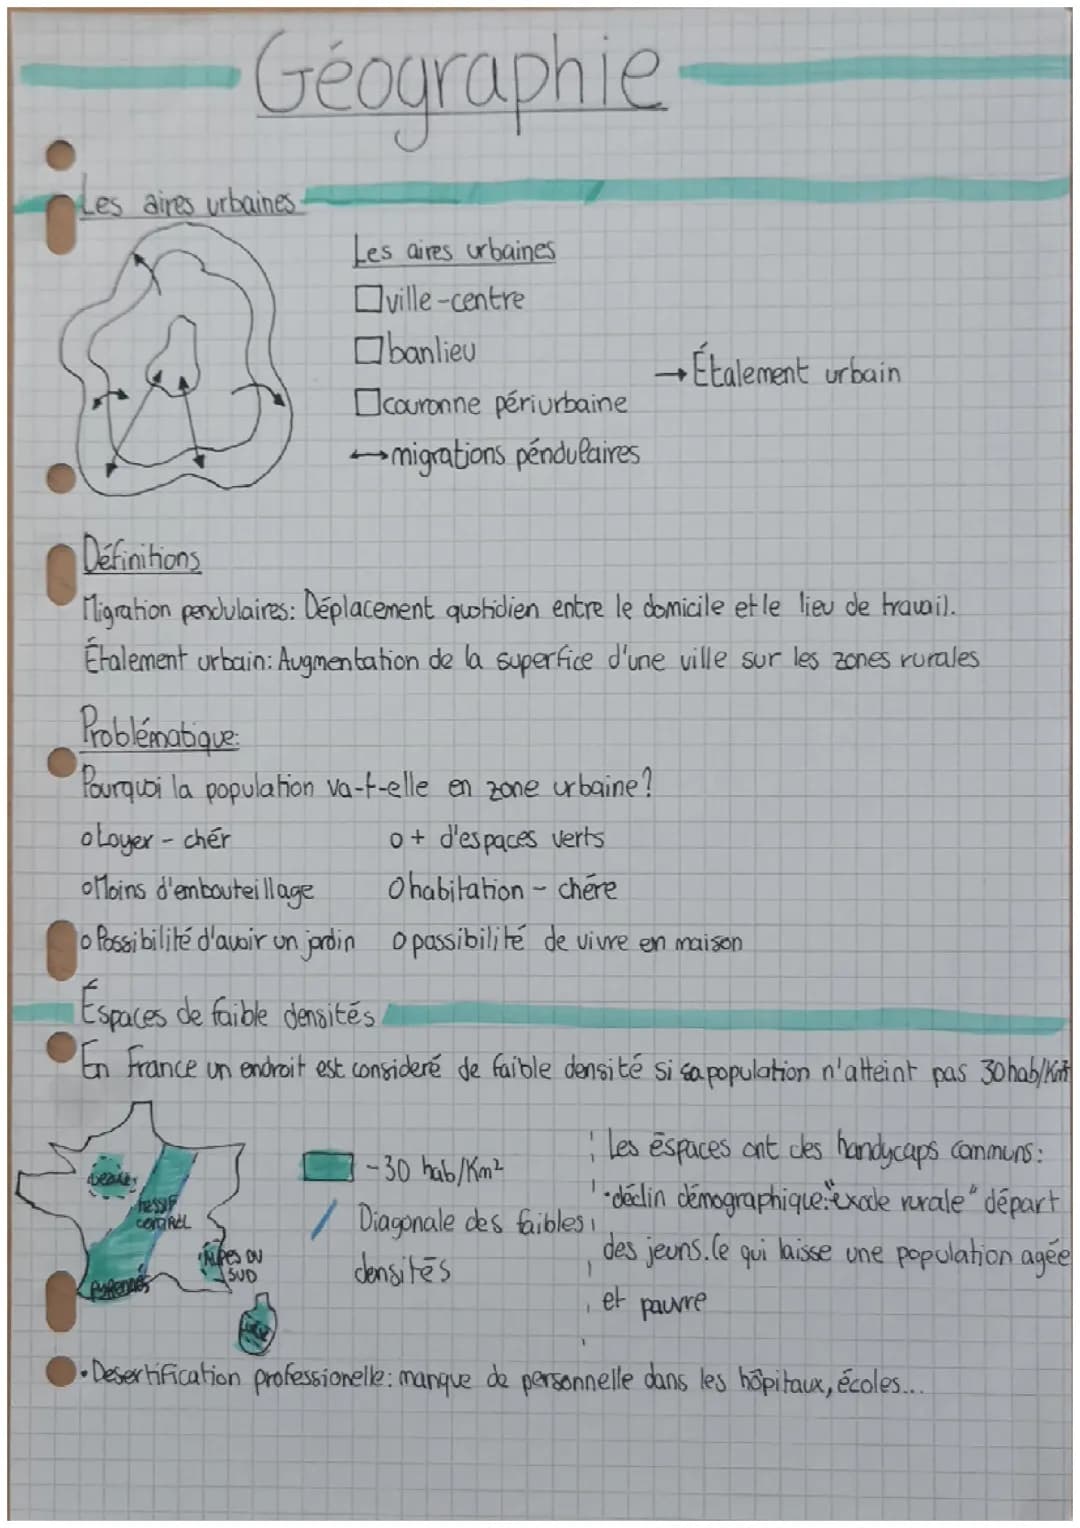 Géographie
Les aires urbaines
Les aires urbaines
ville-centre
banlieu
couronne périurbaine
→ Étalement urbain
↔ migrations péndulaires
Définitions
Migration pendulaires: Déplacement quotidien entre le domicile et le lieu de travail.
Étalement urbain: Augmentation de la superfice d'une ville sur les zones rurales
Problématique:
Pourquoi la population va-t-elle en zone urbaine?
o Loyer - chér
o + d'espaces verts
o Moins d'embouteillage
o habitation - chére
o Possibilité d'avoir un jardin
o possibilité de vivre en maison
Éspaces de faible densités
En France un endroit est consideré de faible densité si sa population n'atteint pas 30 hab/Km²
CENTRAL
ALPES DU
SUD
PYRENNÉS
-30 hab/Km²
Diagonale des faibles
densités
Les éspaces ont des handycaps communs:
•déclin démographique:"exode rurale" départ
des jeuns. Ce qui laisse une population agée
et pauvre
• Desertification professionelle: manque de personnelle dans les hôpitaux, écoles...